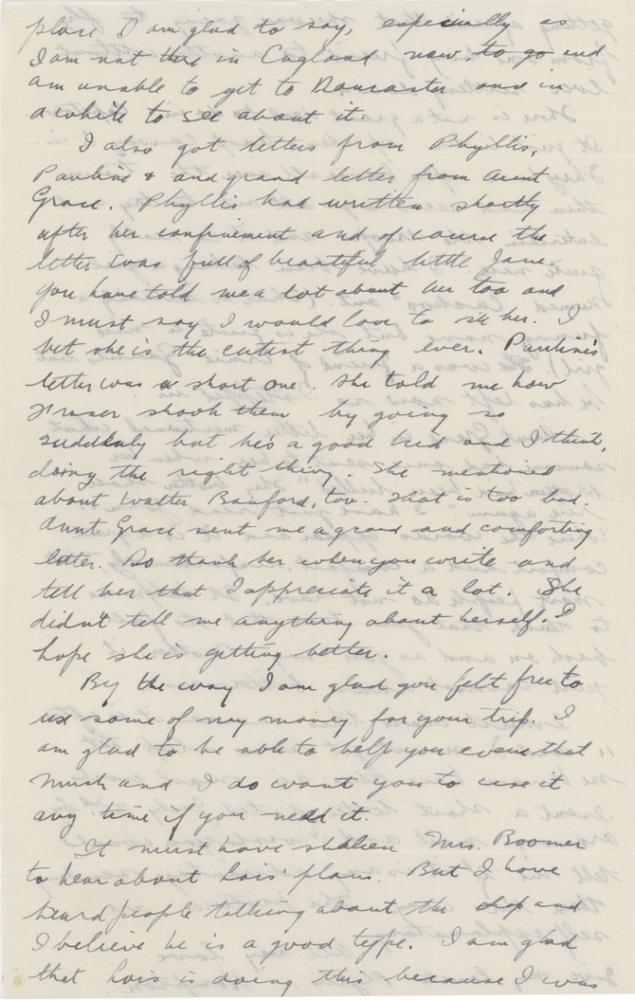 place I am glad to say, especially as
I am not there in England now, to go and
am unable to get to Doncaster once in
a while to see about it.
I also got letters from Phyllis,
Pauline & and grand letter from Aunt
Grace. Phyllis had written shortly
after her confinement and of course the
letter was full of beautiful little Jane.
You have told me a lot about her too and
I must say I would love to see her. I
bet she is the cutest thing ever. Pauline's
letter was a short one. She told me how
Fraser shook them by going so
suddenly but he's a good kid and I think,
doing the right thing. She mentioned
about Walter Banford, too. That is too bad.
Aunt Grace sent me a grand and comforting
letter. Do thank her when you write and
tell her that I appreciate it a lot. She
didn't tell me anything about herself. I
hope she is getting better.
By the way I am glad you felt free to
use some of my money for your trip. I
am glad to be able to help you even that
much and I do want you to use it
any time if you need it.
It must have shaken Mrs. Boomer
to hear about Lois' plans. But I have
heard people talking about the chap and
I believe he is a good type. I am glad
that Lois is doing this because I was